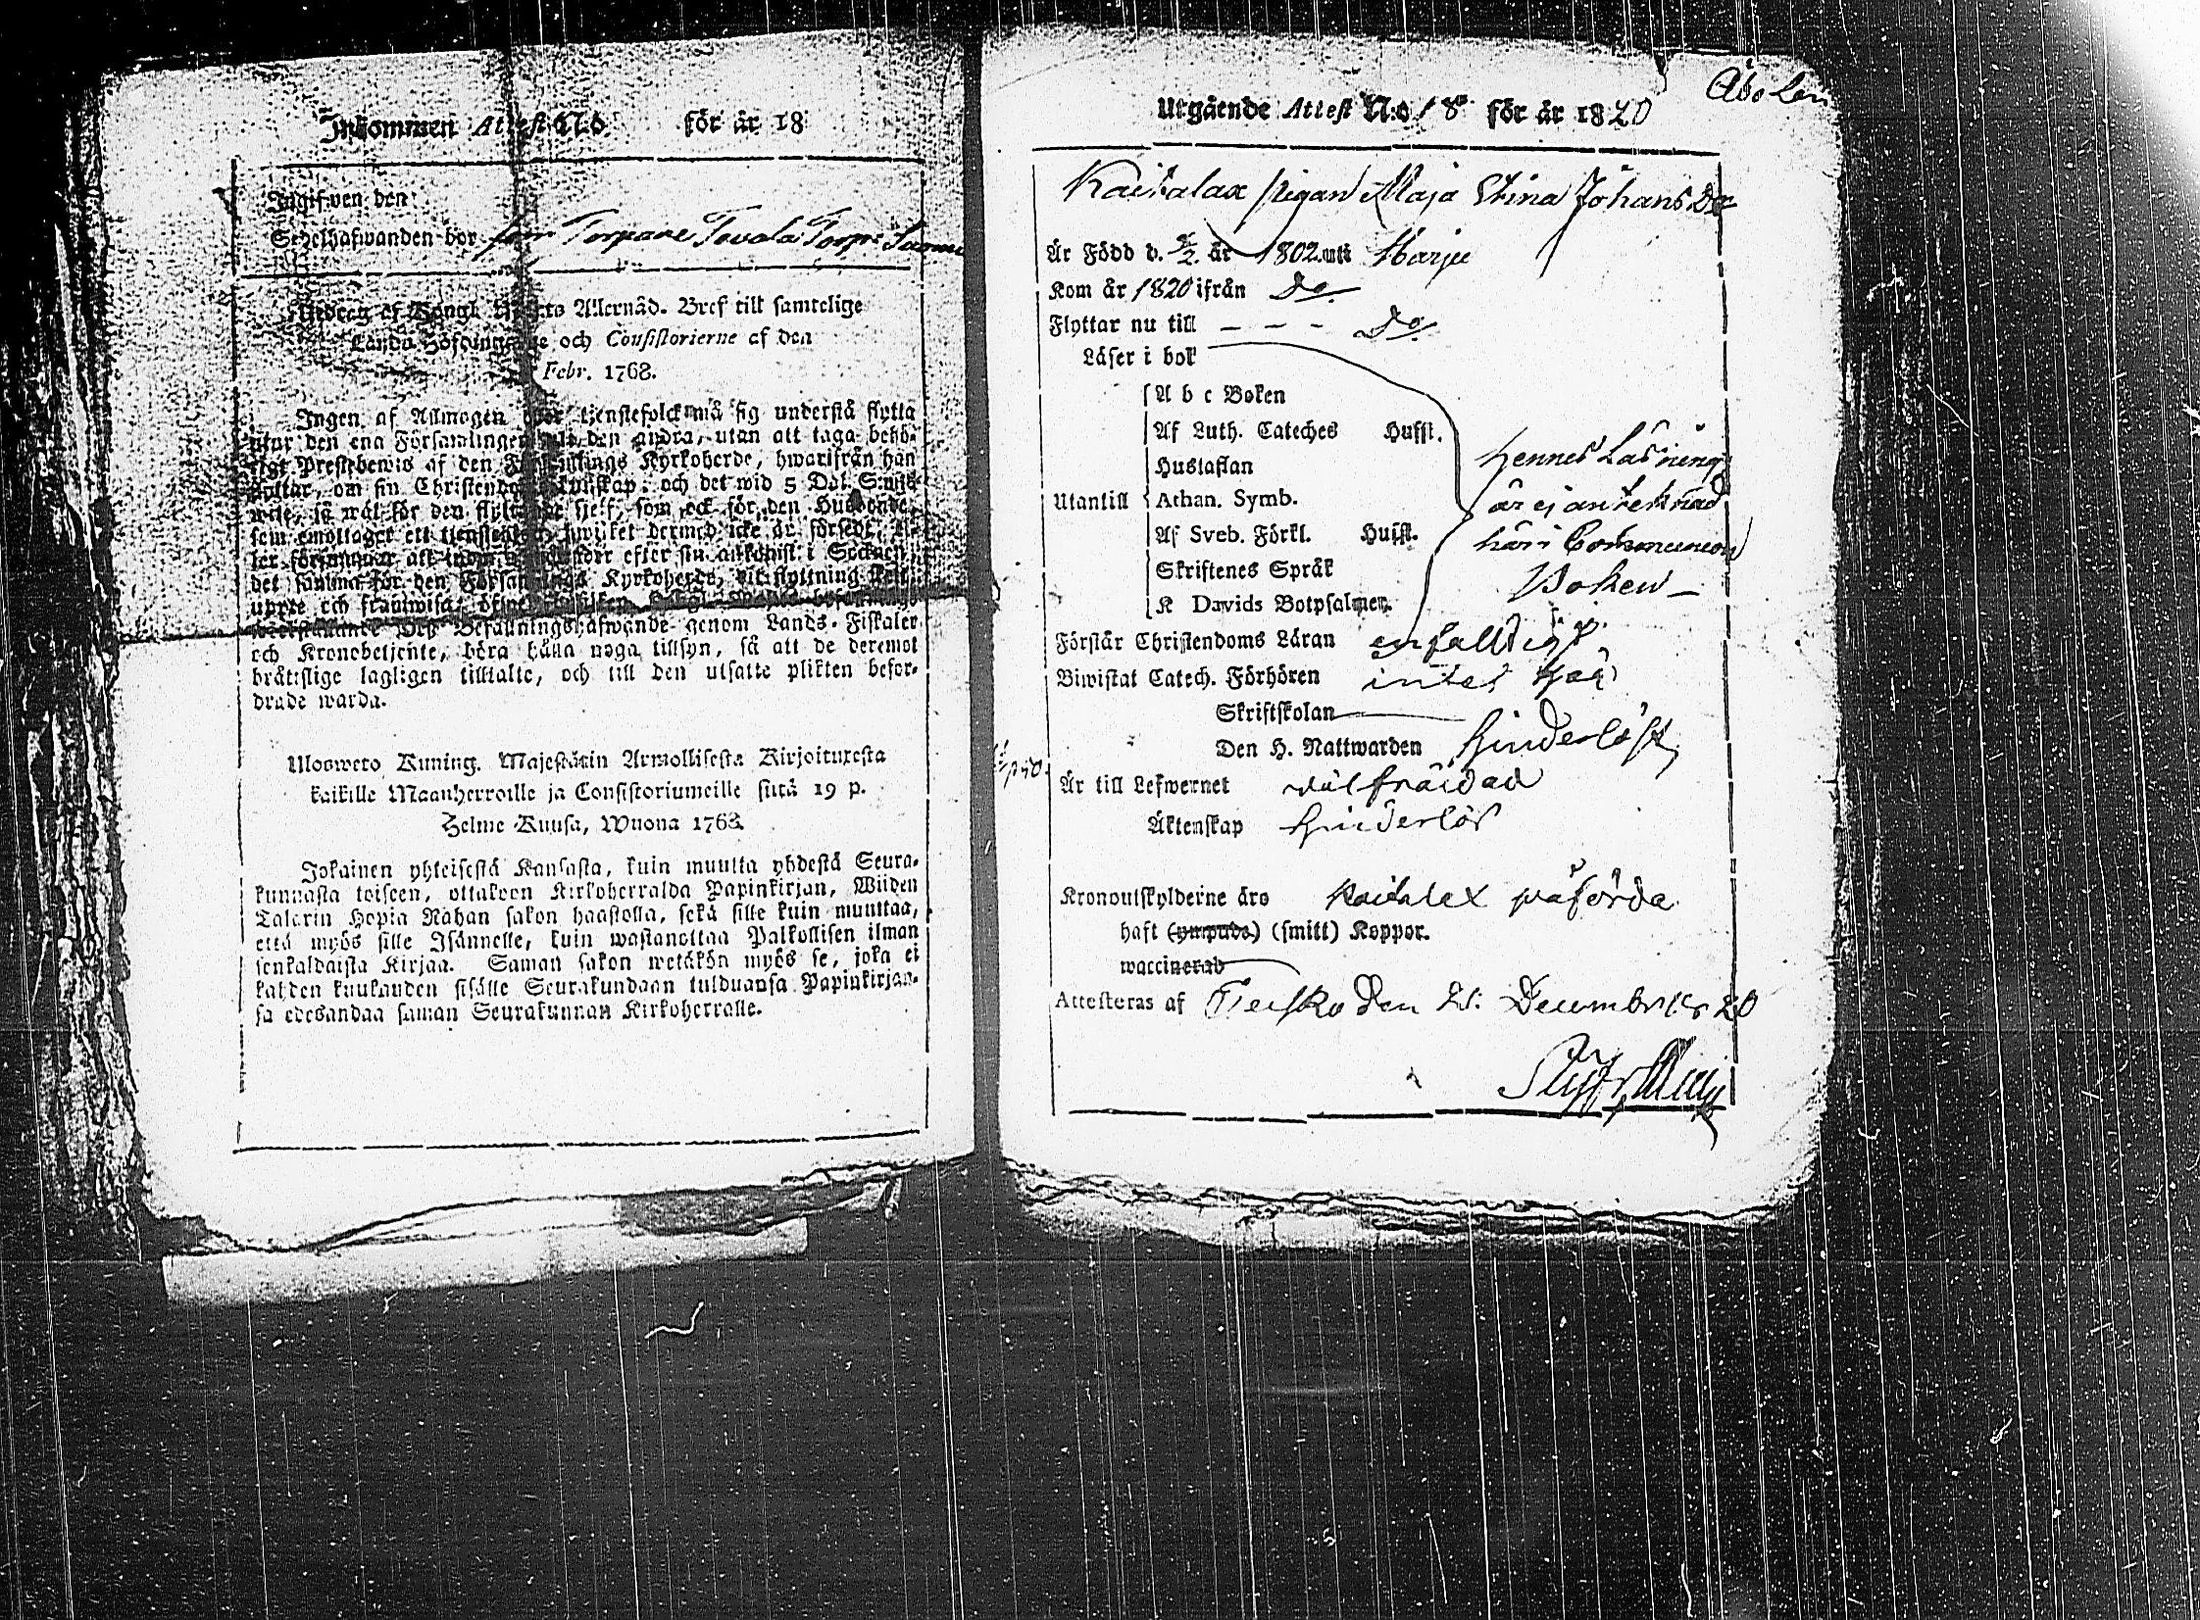 Inkommen Attest N:o för år 18
Ingifwen den
Sedelhafwanden bor Torpare Tevala Torp
Utdrag af Kongl. Allernåd. Bref till samtelige
Lands Höfdingarne och Consistorierne af den
Febr. 1768.
Ingen af Allmogen tjenstefolck må sig understå flytta
utur den ena Församlingen den andra, utan att taga behö-
rigt Prestebewis af den Kyrkoherde, hwarifrån han
flyttar, om sin Christendoms kunskap; och det wid 5 Dal. S:mts
wite, så wäl för den sjelf, som ock för den Husbonde,
som emottager ett tjenstehjon, hwilket dermed icke är försedt, el-
ler försummar att inom efter sin ankomst i Socknen,
det samma för den Församlings Kyrkoherde, dit flyttning skett,
uppte och framwisa;
Befallningshafwande genom Lands-Fiskaler
och Kronobetjente, böra hålla noga tillsyn, så att de deremot
brätslige lagligen tilltalte, och till den utsatte plikten befor-
drade warda.
Uloswero Kuning. Majestätin Armollisesta Kirjoituxesta
kaikille Maanherroille ja Consistoriumeille siitä 19 p.
Helme-Kuusa, Wuona 1768.
Jokainen yhteisestä Kansasta, kuin muutta yhdestä Seura-
kunnasta toiseen, ottakoon Kirkoherralda Papinkirjan, Wiiden
Talarin Hopia Rahan sakon haastolla, sekä sille kuin muuttaa,
että myös sille Isännelle, kuin wastanottaa Palkollisen ilman
senkaldaista Kirjaa. Saman sakon wetäkön myös se, joka ei
kahden kuukauden sisälle Seurakundaan tulduansa Papinkirjan-
sa edesandaa saman Seurakunnan Kirkoherralle.
Utgående Attest N:o 18 för år 1820
Kaitalax pigan Maja Stina Johans Dr
Är Född d. år 1802 uti Harju
Kom år 1820 ifrån Do
Flyttar nu till - - - Do
Läser i bok
A b c Boken
Af Luth. Cateches Husst.
Hustaflan
Utantill Athan. Symb.
Af Sveb. Förkl. Husst.
Skriftenes Språk
K Davids Botpsalmer.
hennes Läsning
är ej antecknad
här i Communion
Boken
Förstår Christendoms Läran enfalldigt
Biwistat Catech. Förhören intet här
Skriftskolan
Den H. Nattwarden hinderlöst
Är till Lefwernet wälfräidad
Äktenskap hinderlös
Kronoutskylderne äro Kaitalax påförda
haft (ympade) (smitt) Koppor.
waccinerad
Attesteras af Teisko den 21. December 1820